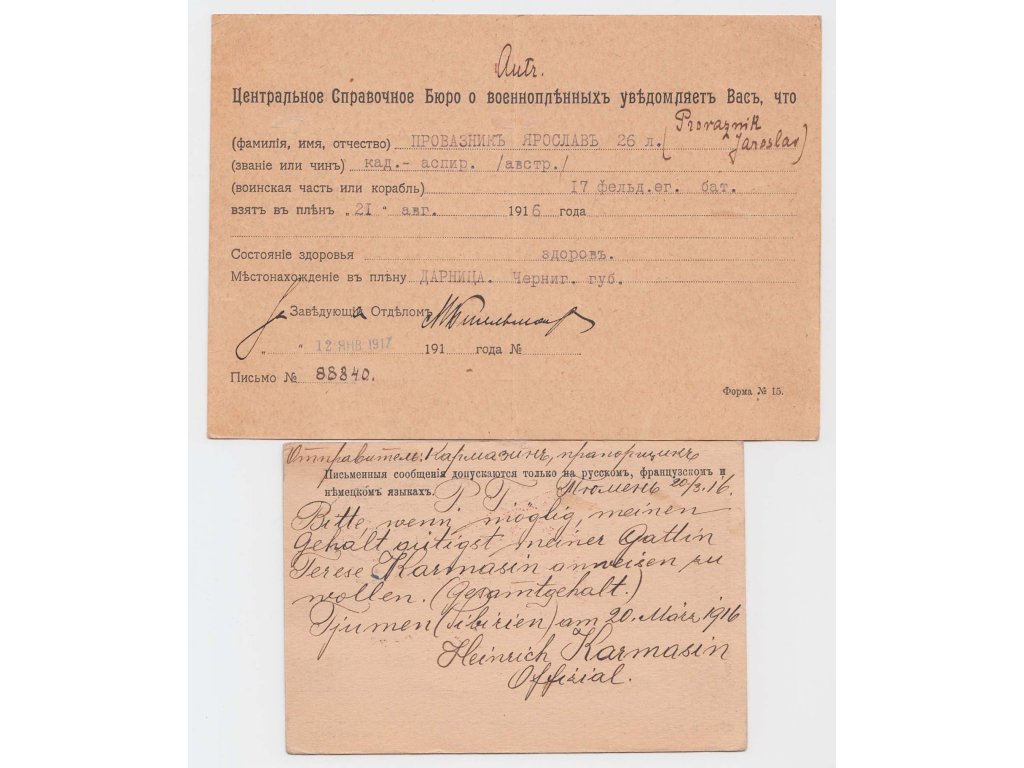 Autr.
Центральное Справочное Бюро о военноплѣнныхъ увѣдомляетъ Васъ, что
(фамилія, имя, отчество) ПРОВАЗНИКЪ ЯРОСЛАВЪ 26 л. (Provaznik Jaroslav)
(званіе или чинъ) кад.- аспир. /австр./
(воинская часть или корабль) 17 фельд.ег. бат.
взятъ въ плѣнъ „21 " авг. 1916 года
Состояніе здоровья здоровъ.
Мѣстонахожденіе въ плѣну ДАРНИЦА. Черниг. губ.
За Завѣдующій Отдѣломъ
" " 12 ЯНВ 1917 191 года №
Письмо № 88840.
Форма № 15.
Отправитель: Кармазинъ, прапорщикъ
Письменныя сообщенія допускаются только на русскомъ, французскомъ и
нѣмецкомъ языкахъ. P. T. Тюмень 20/3.16.
Bitte, wenn möglig, meinen
Gehalt gütigst meiner Gattin
Terese Karmasin anweisen zu
wollen. (Gesamtgehalt.)
Tjumen (Sibirien) am 20. März 1916
Heinrich Karmasin
Offizial.